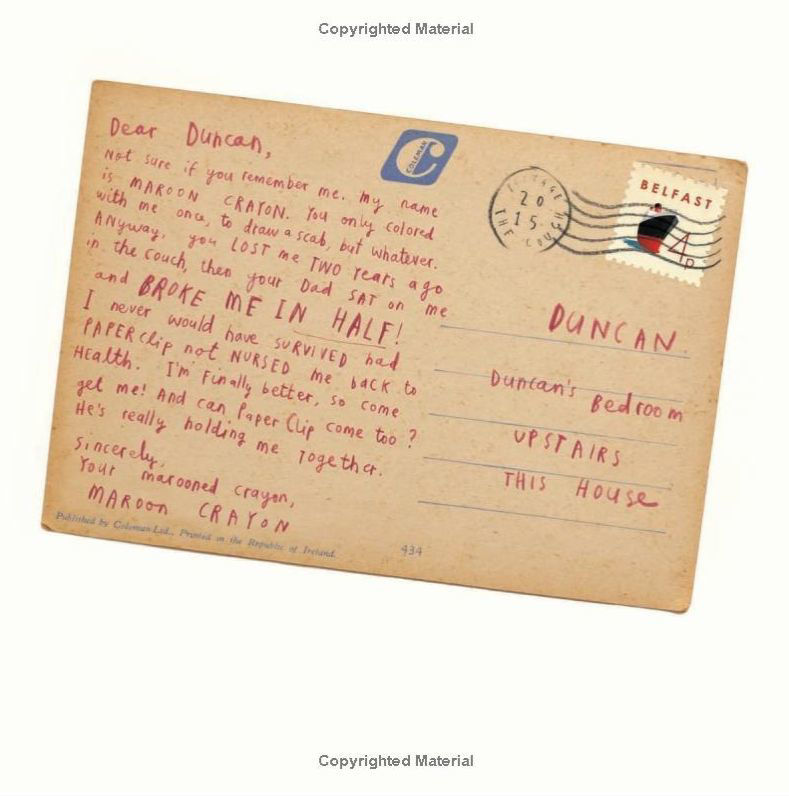 Copyrighted Material
Dear Duncan,
Not sure if you remember me. My name
is MAROON CRAYON. You only colored
with me once, to draw a scab, but whatever.
ANyway, you LOST me TWO years ago
in the couch, then your Dad SAT on me
and BROKE ME IN HALF!
I never would have SURVIVED had
PAPERclip not NURSED me back to
HEalth. I'm Finally better, so come
get me! And can Paper Clip come too?
He's really holding me together.
Sincerely,
Your marooned crayon,
MAROON CRAYON
Published by Coleman Ltd., Printed in the Republic of Ireland.
434
COLEMAN
20
15
THE
BELFAST
4p
DUNCAN
Duncan's Bedroom
UPSTAIRS
THIS HOUSe
Copyrighted Material